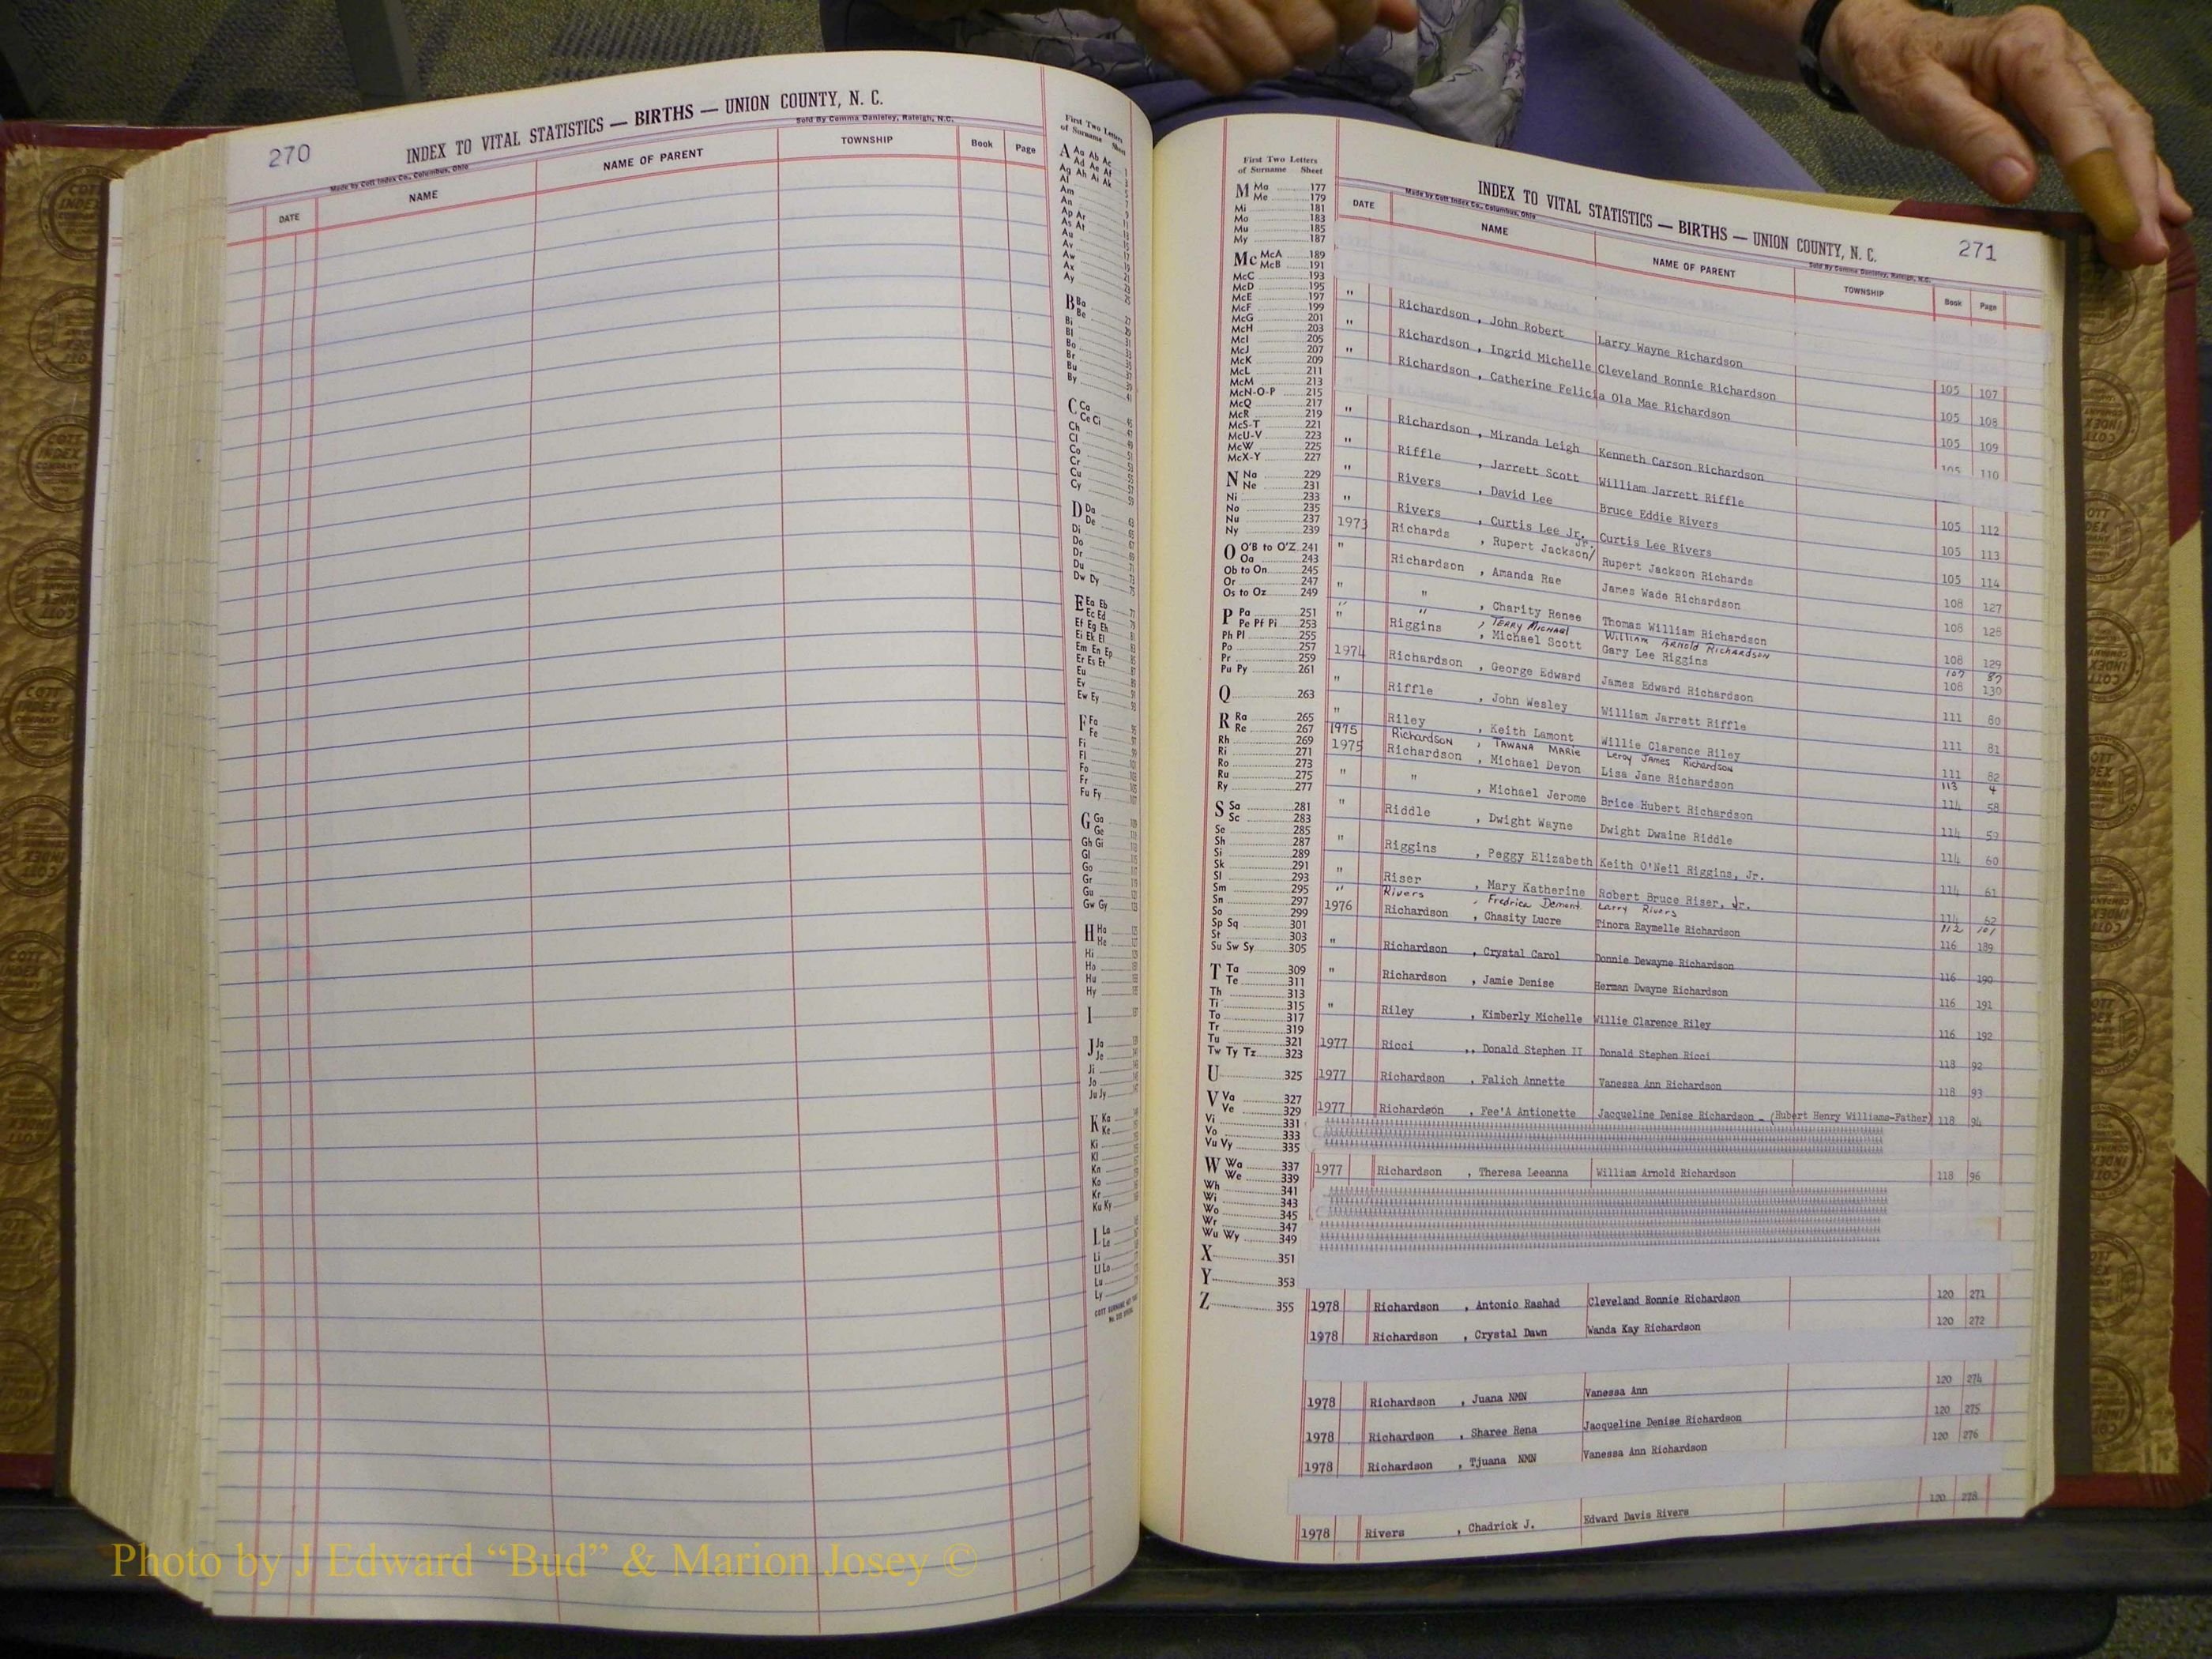 270
INDEX TO VITAL STATISTICS — BIRTHS — UNION COUNTY, N. C.
Made by Cott Index Co., Columbus, Ohio
Sold By Comma Danieley, Raleigh, N.C.
DATE NAME NAME OF PARENT TOWNSHIP Book Page
First Two Letters
of Surname Sheet
A Aa Ab Ac
Ad Ae Af
Ag Ah Ai Ak
Al
Am
An
Ap Ar
As At
Au
Av
Aw
Ax
Ay
B Ba
Be
Bi
Bl
Bo
Br
Bu
By
C Ca
Ce Ci
Ch
Cl
Co
Cr
Cu
Cy
D Da
De
Di
Do
Dr
Du
Dw Dy
E Ea Eb
Ec Ed
Ef Eg Eh
Ei Ek El
Em En Ep
Er Es Et
Eu
Ev
Ew Ey
F Fa
Fe
Fi
Fl
Fo
Fr
Fu Fy
G Ga
Ge
Gh Gi
Gl
Go
Gr
Gu
Gw Gy
H Ha
He
Hi
Ho
Hu
Hy
I
J Ja
Je
Ji
Jo
Ju Jy
K Ka
Ke
Ki
Kl
Kn
Ko
Kr
Ku Ky
L La
Le
Li
Ll Lo
Lu
Ly
First Two Letters
of Surname Sheet
M Ma 177
Me 179
Mi 181
Mo 183
Mu 185
My 187
Mc McA 189
McB 191
McC 193
McD 195
McE 197
McF 199
McG 201
McH 203
McI 205
McJ 207
McK 209
McL 211
McM 213
McN-O-P 215
McQ 217
McR 219
McS-T 221
McU-V 223
McW 225
McX-Y 227
N Na 229
Ne 231
Ni 233
No 235
Nu 237
Ny 239
O O'B to O'Z 241
Oa 243
Ob to On 245
Or 247
Os to Oz 249
P Pa 251
Pe Pf Pi 253
Ph Pl 255
Po 257
Pr 259
Pu Py 261
Q 263
R Ra 265
Re 267
Rh 269
Ri 271
Ro 273
Ru 275
Ry 277
S Sa 281
Sc 283
Se 285
Sh 287
Si 289
Sk 291
Sl 293
Sm 295
Sn 297
So 299
Sp Sq 301
St 303
Su Sw Sy 305
T Ta 309
Te 311
Th 313
Ti 315
To 317
Tr 319
Tu 321
Tw Ty Tz 323
U 325
V Va 327
Ve 329
Vi 331
Vo 333
Vu Vy 335
W Wa 337
We 339
Wh 341
Wi 343
Wo 345
Wr 347
Wu Wy 349
X 351
Y 353
Z 355
INDEX TO VITAL STATISTICS — BIRTHS — UNION COUNTY, N. C.
271
Made by Cott Index Co., Columbus, Ohio
Sold By Comma Danieley, Raleigh, N.C.
DATE NAME NAME OF PARENT TOWNSHIP Book Page
" Richardson , John Robert Larry Wayne Richardson 105 107
" Richardson , Ingrid Michelle Cleveland Ronnie Richardson 105 108
" Richardson , Catherine Felicia Ola Mae Richardson 105 109
" Richardson , Miranda Leigh Kenneth Carson Richardson 105 110
" Riffle , Jarrett Scott William Jarrett Riffle 105 112
" Rivers , David Lee Bruce Eddie Rivers 105 113
" Rivers , Curtis Lee Jr. Curtis Lee Rivers 105 114
1973 Richards , Rupert Jackson/ Jr. Rupert Jackson Richards 108 127
" Richardson , Amanda Rae James Wade Richardson 108 128
" " , Charity Renee Thomas William Richardson 108 129
" " , Terry Michael William Arnold Richardson 107 87
" Riggins , Michael Scott Gary Lee Riggins 108 130
1974 Richardson , George Edward James Edward Richardson 111 80
" Riffle , John Wesley William Jarrett Riffle 111 81
" Riley , Keith Lamont Willie Clarence Riley 111 82
1975 Richardson , Tawana Marie Leroy James Richardson 113 4
1975 Richardson , Michael Devon Lisa Jane Richardson 114 58
" " , Michael Jerome Brice Hubert Richardson 114 59
" Riddle , Dwight Wayne Dwight Dwaine Riddle 114 60
" Riggins , Peggy Elizabeth Keith O'Neil Riggins, Jr. 114 61
" Riser , Mary Katherine Robert Bruce Riser, Jr. 114 62
" Rivers , Fredrica Demont Larry Rivers 112 101
1976 Richardson , Chasity Lucre Tinora Raymelle Richardson 116 189
" Richardson , Crystal Carol Donnie Dewayne Richardson 116 190
" Richardson , Jamie Denise Herman Dwayne Richardson 116 191
" Riley , Kimberly Michelle Willie Clarence Riley 116 192
1977 Ricci ,, Donald Stephen II Donald Stephen Ricci 118 92
1977 Richardson , Falich Annette Vanessa Ann Richardson 118 93
1977 Richardson , Fee'A Antionette Jacqueline Denise Richardson - (Hubert Henry Williams-Father) 118 94
1977 Richardson , Theresa Leeanna William Arnold Richardson 118 96
1978 Richardson , Antonio Rashad Cleveland Ronnie Richardson 120 271
1978 Richardson , Crystal Dawn Wanda Kay Richardson 120 272
1978 Richardson , Juana NMN Vanessa Ann 120 274
1978 Richardson , Sharee Rena Jacqueline Denise Richardson 120 275
1978 Richardson , Tjuana NMN Vanessa Ann Richardson 120 276
1978 Rivers , Chadrick J. Edward Davis Rivers 120 278
Photo by J Edward "Bud" & Marion Josey ©